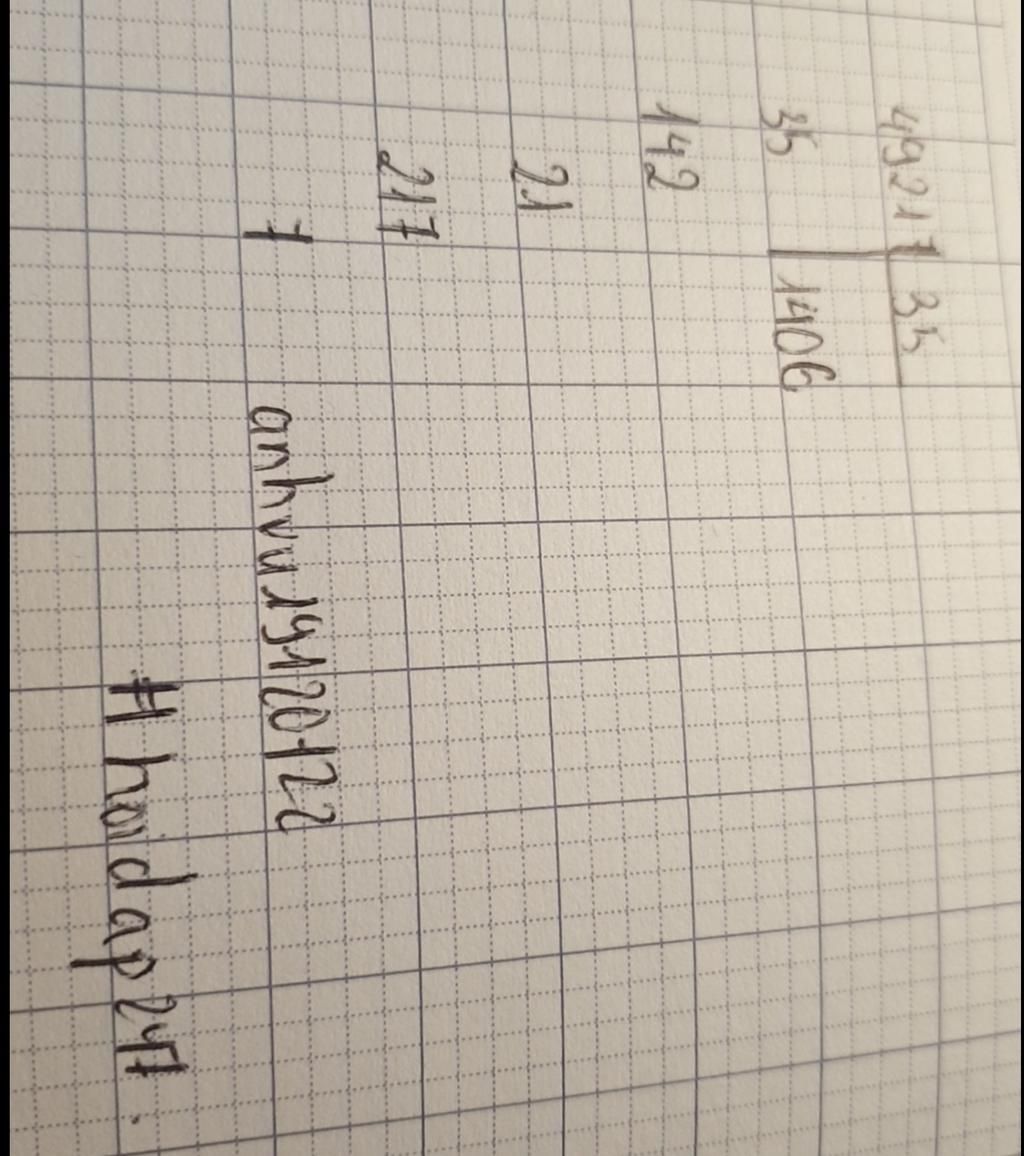 49217 35
35 1406
142
21
217
7
anhvu19120122
# hoidap247.